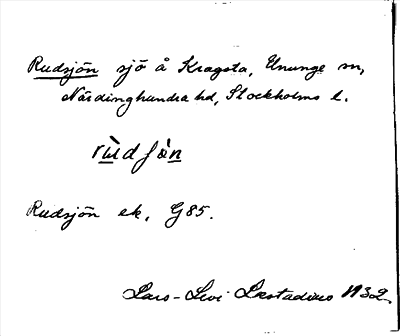 Rudsjön sjö å Kragsta, Ununge sn,
Närdinghundra hd, Stockholms l.
rùdʃòn
Rudsjön ek. G85.
Lars-Levi Læstadius 1932.